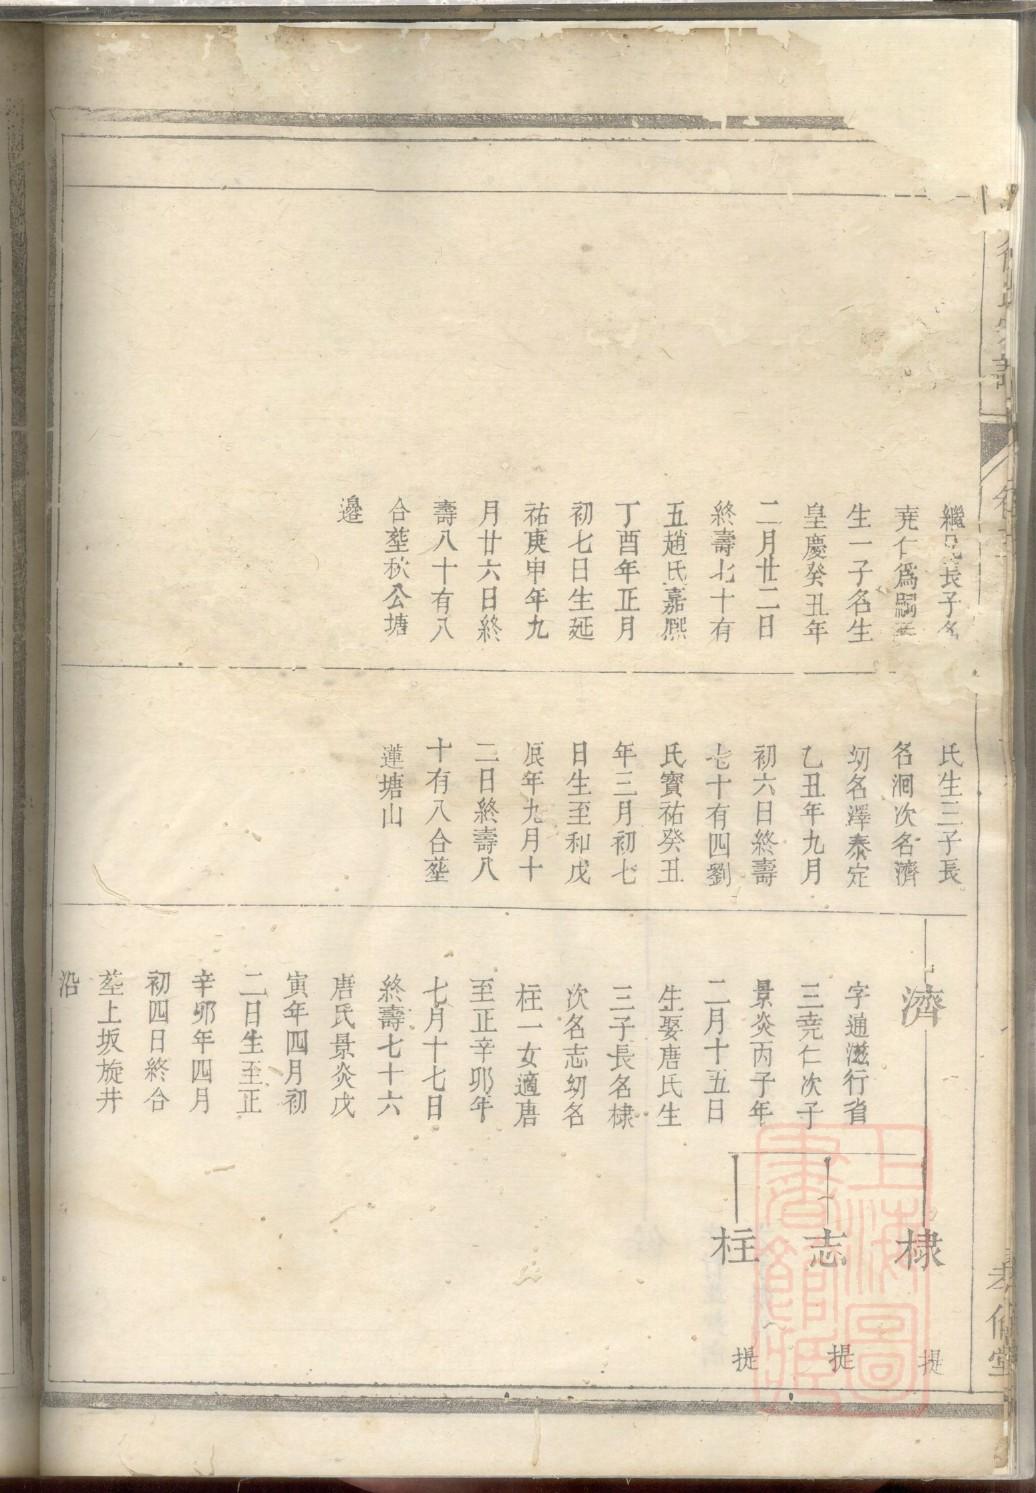 繼兄長子名
堯仁爲嗣
生一子名生
皇慶癸丑年
二月廿二日
終壽七十有
五趙氏嘉熙
丁酉年正月
初七日生延
祐庚申年九
月廿六日終
壽八十有八
合塟秋公塘
邊
氏生三子長
名洄次名濟
幼名澤泰定
乙丑年九月
初六日終壽
七十有四劉
氏寶祐癸丑
年三月初七
日生至和戊
辰年九月十
二日終壽八
十有八合塟
蓮塘山
濟
字通濨行省
三堯仁次子
景炎丙子年
二月十五日
生娶唐氏生
三子長名棣
次名志幼名
柱一女適唐
至正辛卯年
七月十七日
終壽七十六
唐氏景炎戊
寅年四月初
二日生至正
辛卯年四月
初四日終合
塟上坂旋井
沿
棣
提
志
提
柱
提
上海圖
書館藏